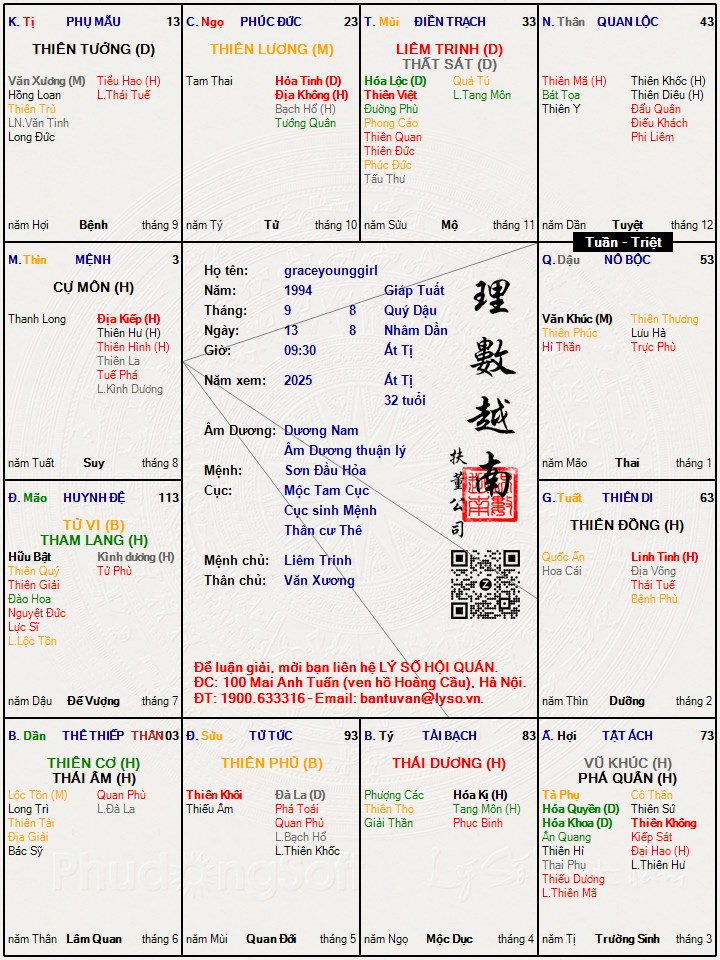 K. Tị PHỤ MẪU 13
THIÊN TƯỚNG (D)
Văn Xương (M) Tiểu Hao (H)
Hồng Loan L.Thái Tuế
Thiên Trù
LN.Văn Tinh
Long Đức
năm Hợi Bệnh tháng 9
C. Ngọ PHÚC ĐỨC 23
THIÊN LƯƠNG (M)
Tam Thai Hỏa Tinh (D)
Địa Không (H)
Bạch Hổ (H)
Tướng Quân
năm Tý Tử tháng 10
T. Mùi ĐIỀN TRẠCH 33
LIÊM TRINH (D)
THẤT SÁT (D)
Hóa Lộc (D) Quả Tú
Thiên Việt L.Tang Môn
Đường Phù
Phong Cáo
Thiên Quan
Thiên Đức
Phúc Đức
Tấu Thư
năm Sửu Mộ tháng 11
N. Thân QUAN LỘC 43
Thiên Mã (H) Thiên Khốc (H)
Bát Tọa Thiên Diêu (H)
Thiên Y Đẩu Quân
Điếu Khách
Phi Liêm
năm Dần Tuyệt tháng 12
Tuần - Triệt
M. Thìn MỆNH 3
CỰ MÔN (H)
Thanh Long Địa Kiếp (H)
Thiên Hư (H)
Thiên Hình (H)
Thiên La
Tuế Phá
L.Kình Dương
năm Tuất Suy tháng 8
Họ tên: graceyounggirl
Năm: 1994 Giáp Tuất
Tháng: 9 8 Quý Dậu
Ngày: 13 8 Nhâm Dần
Giờ: 09:30 Ất Tị
Năm xem: 2025 Ất Tị
32 tuổi
Âm Dương: Dương Nam
Âm Dương thuận lý
Mệnh: Sơn Đầu Hỏa
Cục: Mộc Tam Cục
Cục sinh Mệnh
Thân cư Thê
Mệnh chủ: Liêm Trinh
Thân chủ: Văn Xương
理數越南
扶董公司
Để luận giải, mời bạn liên hệ LÝ SỐ HỘI QUÁN.
ĐC: 100 Mai Anh Tuấn (ven hồ Hoàng Cầu), Hà Nội.
ĐT: 1900.633316 - Email: bantuvan@lyso.vn.
Q. Dậu NÔ BỘC 53
Văn Khúc (M) Thiên Thương
Thiên Phúc Lưu Hà
Hỉ Thần Trực Phù
năm Mão Thai tháng 1
Đ. Mão HUYNH ĐỆ 113
TỬ VI (B)
THAM LANG (H)
Hữu Bật Kình dương (H)
Thiên Quý Tử Phù
Thiên Giải
Đào Hoa
Nguyệt Đức
Lực Sĩ
L.Lộc Tồn
năm Dậu Đế Vượng tháng 7
G. Tuất THIÊN DI 63
THIÊN ĐỒNG (H)
Quốc Ấn Linh Tinh (H)
Hoa Cái Địa Võng
Thái Tuế
Bệnh Phù
năm Thìn Dưỡng tháng 2
B. Dần THÊ THIẾP THÂN 103
THIÊN CƠ (H)
THÁI ÂM (H)
Lộc Tồn (M) Quan Phù
Long Trì L.Đà La
Thiên Tài
Địa Giải
Bác Sỹ
năm Thân Lâm Quan tháng 6
Đ. Sửu TỬ TỨC 93
THIÊN PHỦ (B)
Thiên Khôi Đà La (D)
Thiếu Âm Phá Toái
Quan Phủ
L.Bạch Hổ
L.Thiên Khốc
năm Mùi Quan Đới tháng 5
B. Tý TÀI BẠCH 83
THÁI DƯƠNG (H)
Phượng Các Hóa Kị (H)
Thiên Thọ Tang Môn (H)
Giải Thần Phục Binh
năm Ngọ Mộc Dục tháng 4
Ấ. Hợi TẬT ÁCH 73
VŨ KHÚC (H)
PHÁ QUÂN (H)
Tả Phụ Cô Thần
Hóa Quyền (D) Thiên Sứ
Hóa Khoa (D) Thiên Không
Ân Quang Kiếp Sát
Thiên Hỉ Đại Hao (H)
Thai Phụ L.Thiên Hư
Thiếu Dương
L.Thiên Mã
năm Tị Trường Sinh tháng 3